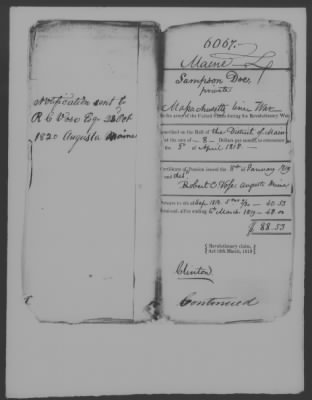 Notification sent to
R C Vose Esq 28 Oct
1820 Augusta Maine
6067.
Maine
Sampson Doe,
private
Massachusetts line War
in the army of the United States during the Revolutionary War
Inscribed on the Roll of the District of Maine
at the rate of 8 Dollars per month to commence
on the 5th of April 1818.
Certificate of Pension issued the 8th of January 1819
and del.
Robert C Vose Augusta Maine
Arrears to 4th of Sep. 1818. 5 mos 2/30 40.53
Semi-anl. allce ending 4th March 1819 48.00
$ 88.53
{ Revolutionary claim,
Act 18th March, 1818 }
Clinton
Continued